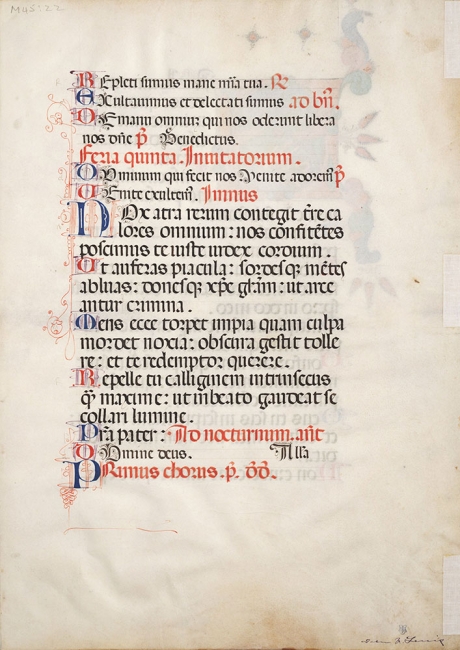 M45:22
Repleti sumus mane mĩa tua. R
Exultauimus et delectati sumus ad bñ.
De manu omnium qui nos oderunt libera
nos dñe p̃ Benedictus.
Feria quinta. Inuitatorium.
Dominum qui fecit nos Uenite adorem̃ p̃
Uenite exultem̃. Imnus
Nox atra rerum contegit t̃re ca
lores omnium: nos confitẽtes
poscimus te iuste iudex cordium.
Ut auferas piacula: sordesq; mẽtes
abluas: donesq; xp̃e gr̃am: ut arce
antur crimina.
Mens ecce torpet impia quam culpa
mordet noxia: obscura gestit tolle
re: et te redemptor querere.
Repelle tu calliginem intrinsecus
q̃ maxime: ut in beato gaudeat se
collari lumine.
Pr̃a pater: Ad nocturnum. añt
Domine deus. All̃a
Primus chorus. p̃. dd̃.